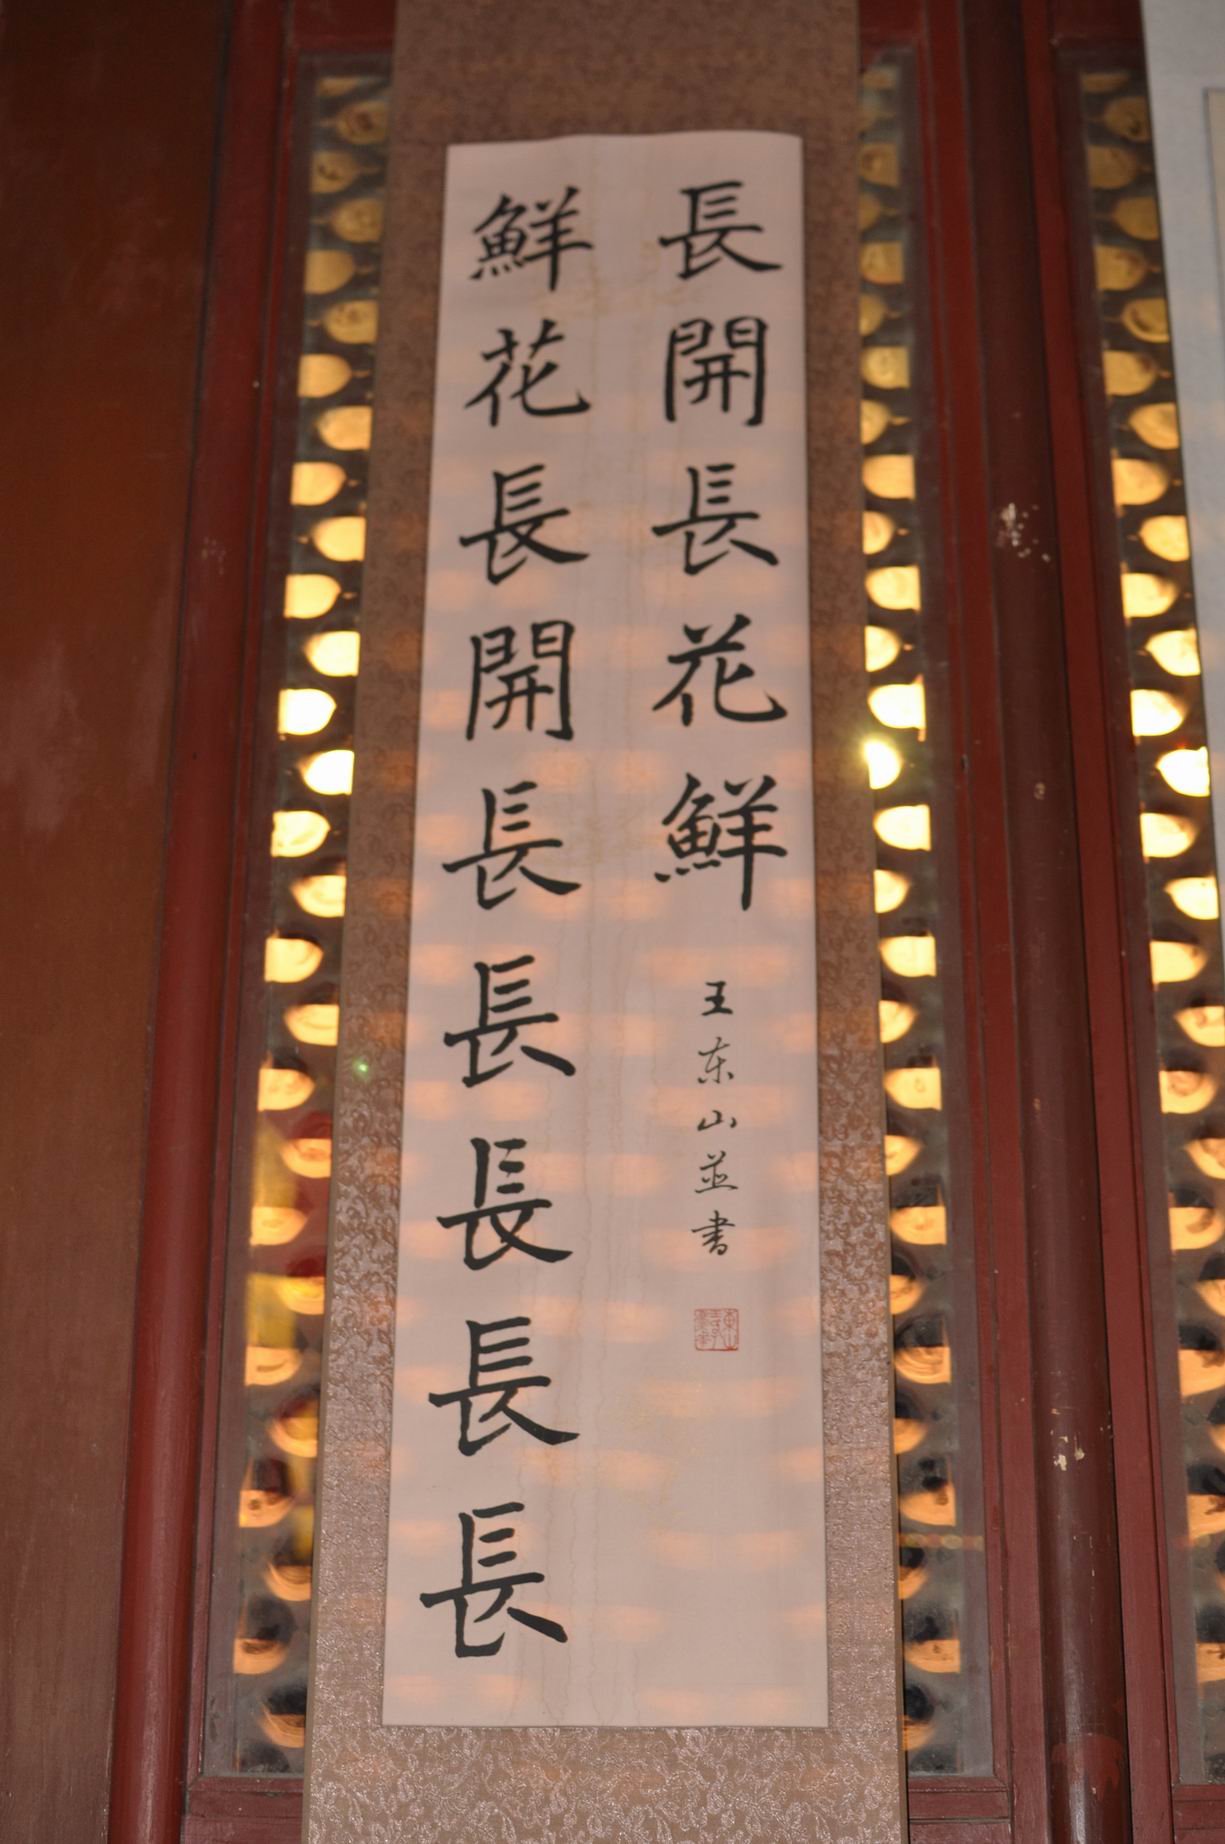 鮮花長開長長長長長
長開長花鮮
王东山並書